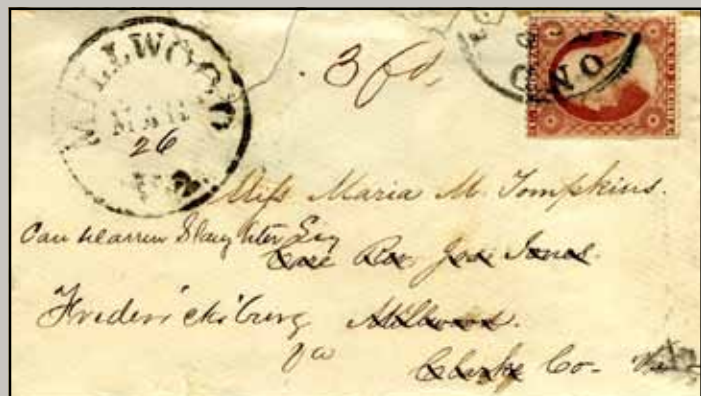 MILLWOOD
MAR
26
Va
3 Pd.
Miss Maria M. Tompkins.
Care Warren Slaughter Esq
Care Rev. Jos. Jones.
Fredericksburg Millwood.
Va
Clarke Co- Va